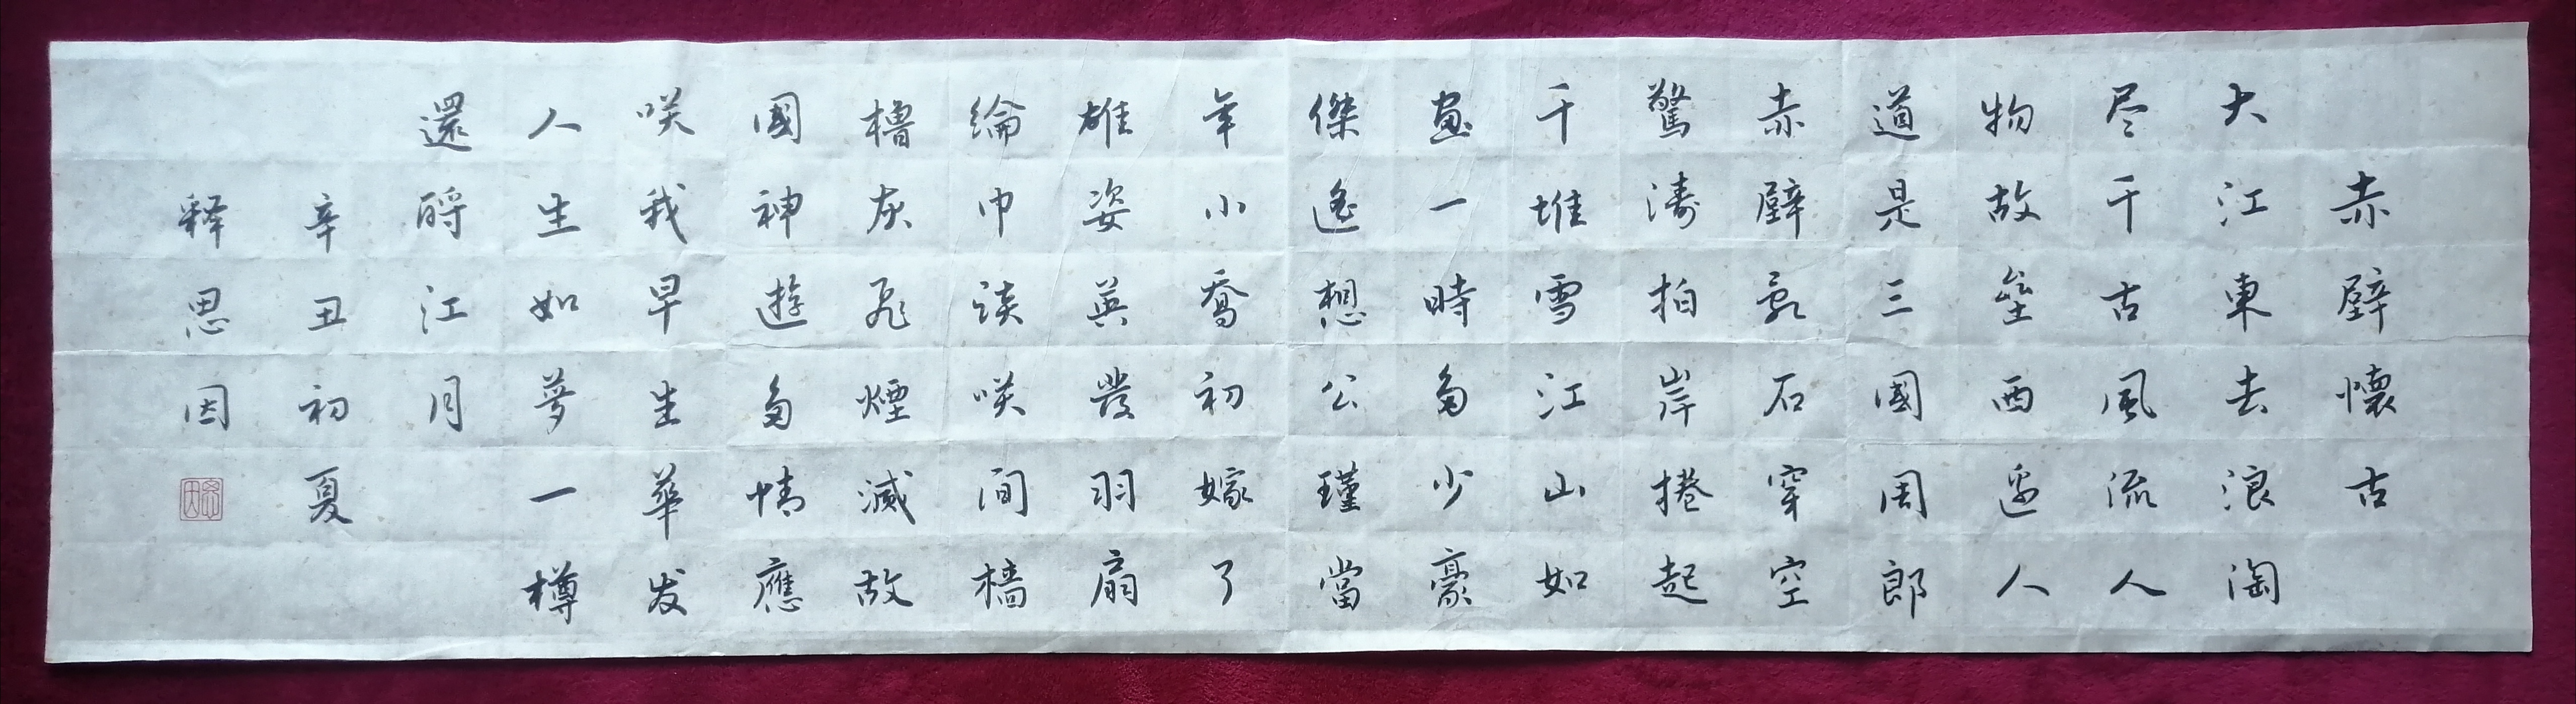 赤壁懷古
大江東去浪淘
尽千古風流人
物故壘西邊人
道是三國周郎
赤壁亂石穿空
驚濤拍岸捲起
千堆雪江山如
畫一時多少豪
傑遙想公瑾當
年小喬初嫁了
雄姿英發羽扇
綸巾談咲间檣
櫓灰飛煙滅故
國神遊多情應
咲我早生華发
人生如夢一樽
還酹江月
辛丑初夏
释思因
思因